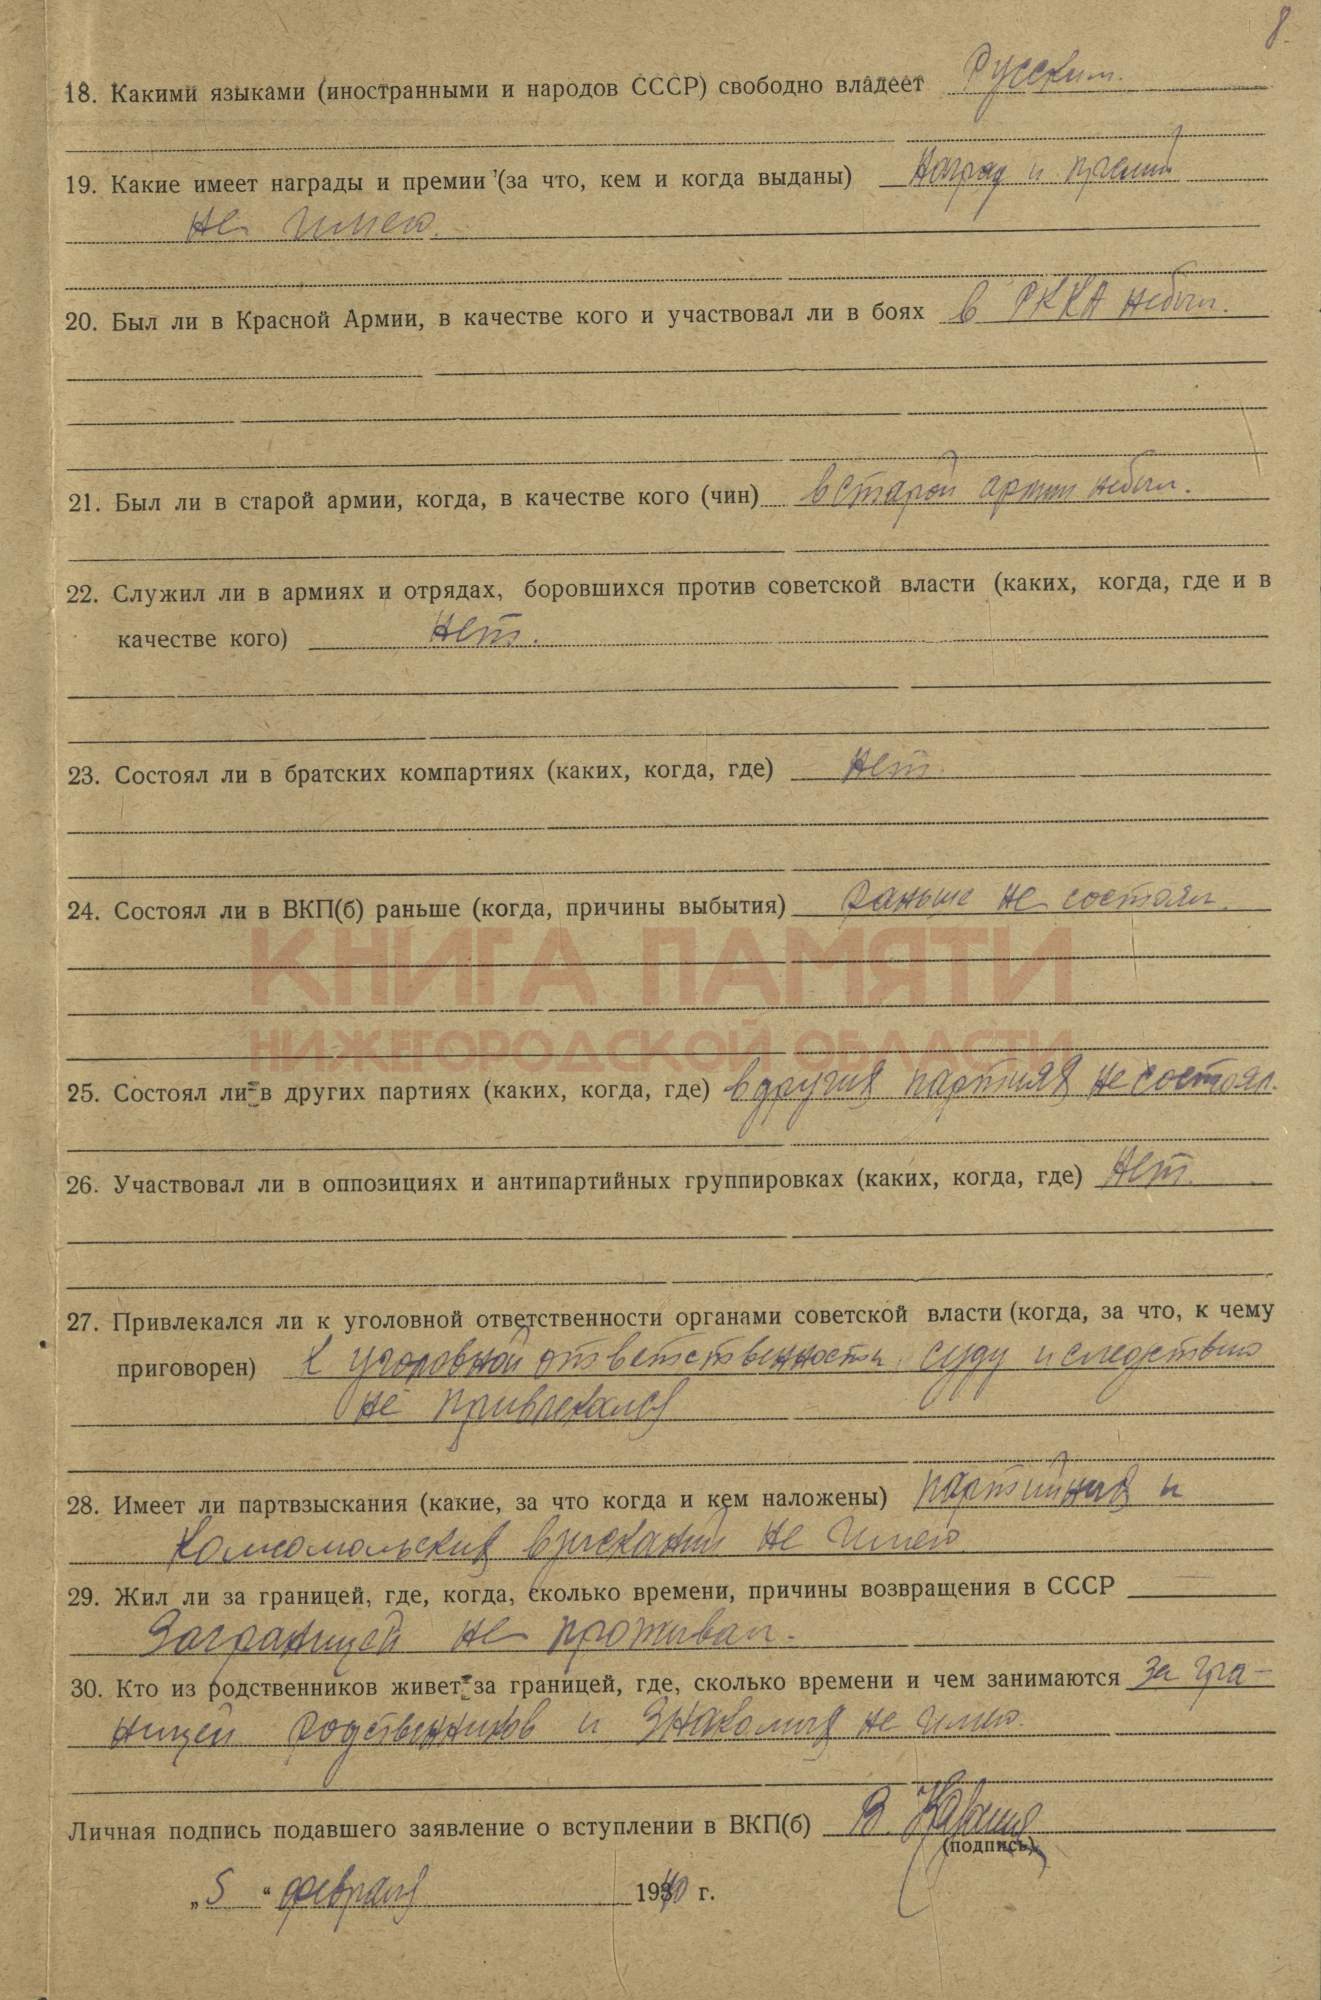 8.
18. Какими языками (иностранными и народов СССР) свободно владеет Русским.
19. Какие имеет награды и премии (за что, кем и когда выданы) Наград и премий
не имею.
20. Был ли в Красной Армии, в качестве кого и участвовал ли в боях в РККА небыл.
21. Был ли в старой армии, когда, в качестве кого (чин) в старой армии небыл.
22. Служил ли в армиях и отрядах, боровшихся против советской власти (каких, когда, где и в
качестве кого) Нет.
23. Состоял ли в братских компартиях (каких, когда, где) Нет.
24. Состоял ли в ВКП(б) раньше (когда, причины выбытия) Раньше не состоял.
КНИГА ПАМЯТИ
НИЖЕГОРОДСКОЙ ОБЛАСТИ
25. Состоял ли в других партиях (каких, когда, где) в других партиях не состоял.
26. Участвовал ли в оппозициях и антипартийных группировках (каких, когда, где) Нет.
27. Привлекался ли к уголовной ответственности органами советской власти (когда, за что, к чему
приговорен) к уголовной ответственности, суду и следствию
не привлекался
28. Имеет ли партвзыскания (какие, за что когда и кем наложены) партийных и
комсомольских взысканий не имею
29. Жил ли за границей, где, когда, сколько времени, причины возвращения в СССР
Заграницей не проживал.
30. Кто из родственников живет за границей, где, сколько времени и чем занимаются за гра-
ницей родственников и знакомых не имею.
Личная подпись подавшего заявление о вступлении в ВКП(б) В.
(подпись)
„5“ февраля 1940 г.